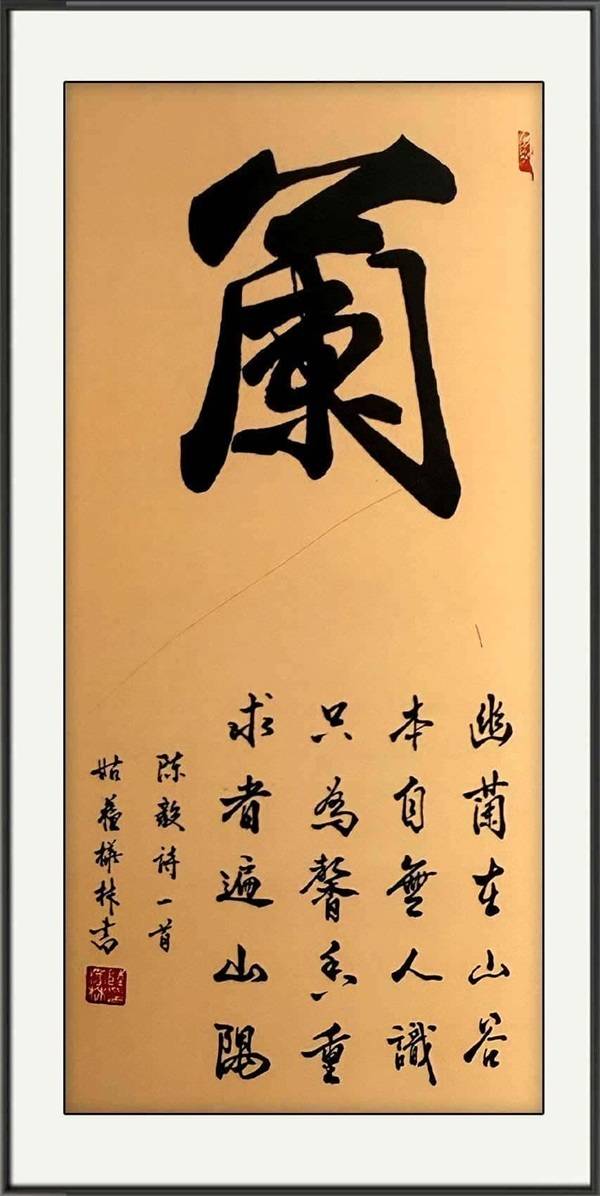 蘭
幽蘭在山谷
本自無人識
只為馨香重
求者遍山隅
陳毅詩一首
姑蘇